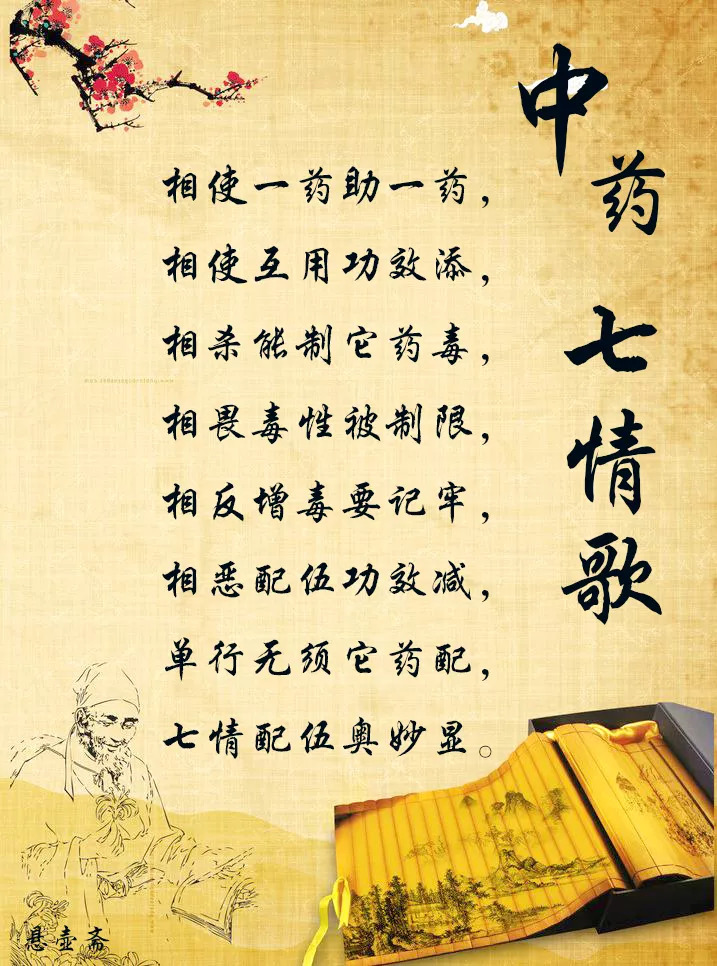 中药七情歌
相使一药助一药，
相使互用功效添，
相杀能制它药毒，
相畏毒性被制限，
相反增毒要记牢，
相恶配伍功效减，
单行无须它药配，
七情配伍奥妙显。
悬壶斋